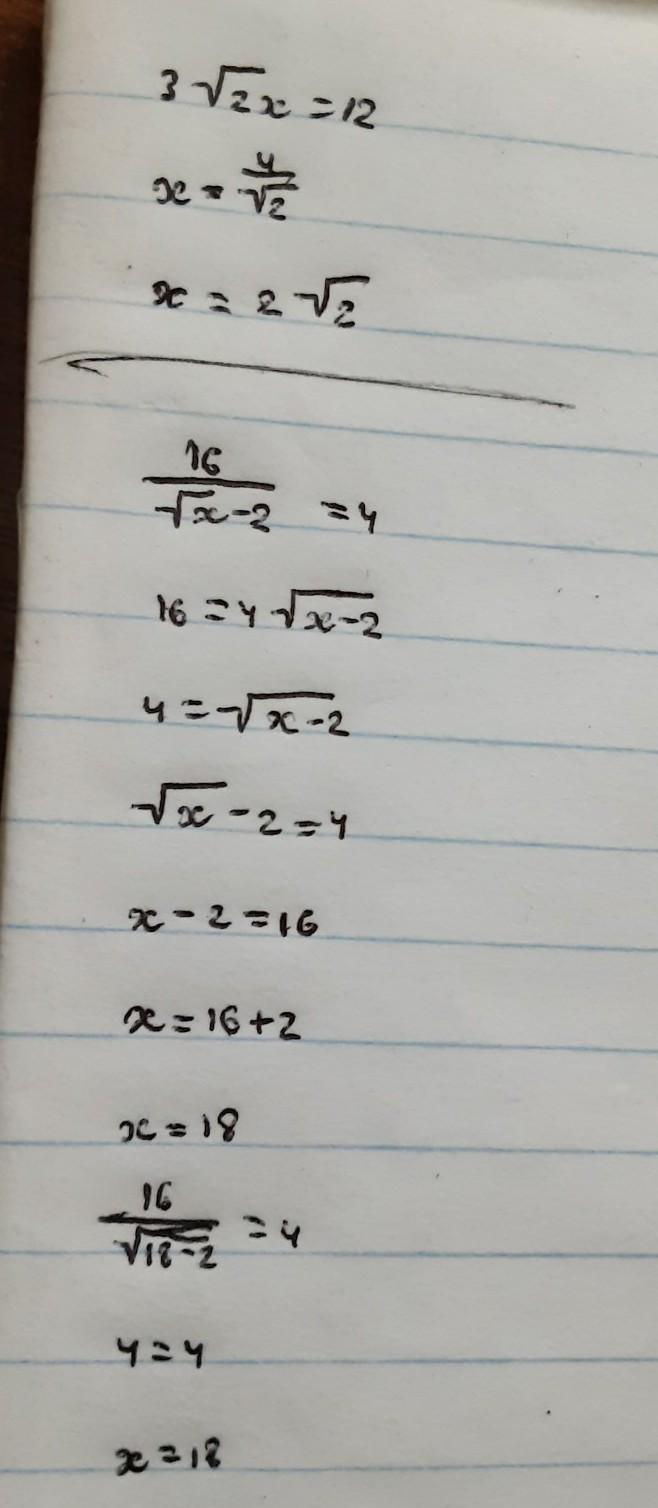 3√2x = 12
x = 4/√2
x = 2√2
16/(√x-2) = 4
16 = 4√(x-2)
4 = √(x-2)
√x - 2 = 4
x - 2 = 16
x = 16 + 2
x = 18
16/√(18-2) = 4
4 = 4
x = 18